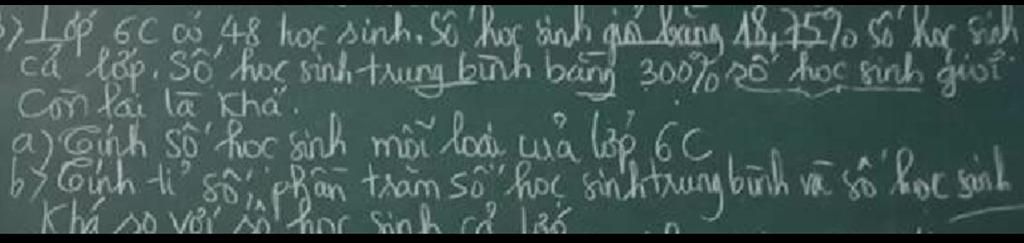 b) Lớp 6C có 48 học sinh. Số học sinh giỏi bằng 18,75% số học sinh
cả lớp. Số học sinh trung bình bằng 300% số học sinh giỏi.
Còn lại là khá.
a) Tính số học sinh mỗi loại của lớp 6C
b) Tính tỉ số phần trăm số học sinh trung bình và số học sinh
Khá so với số học sinh cả lớp